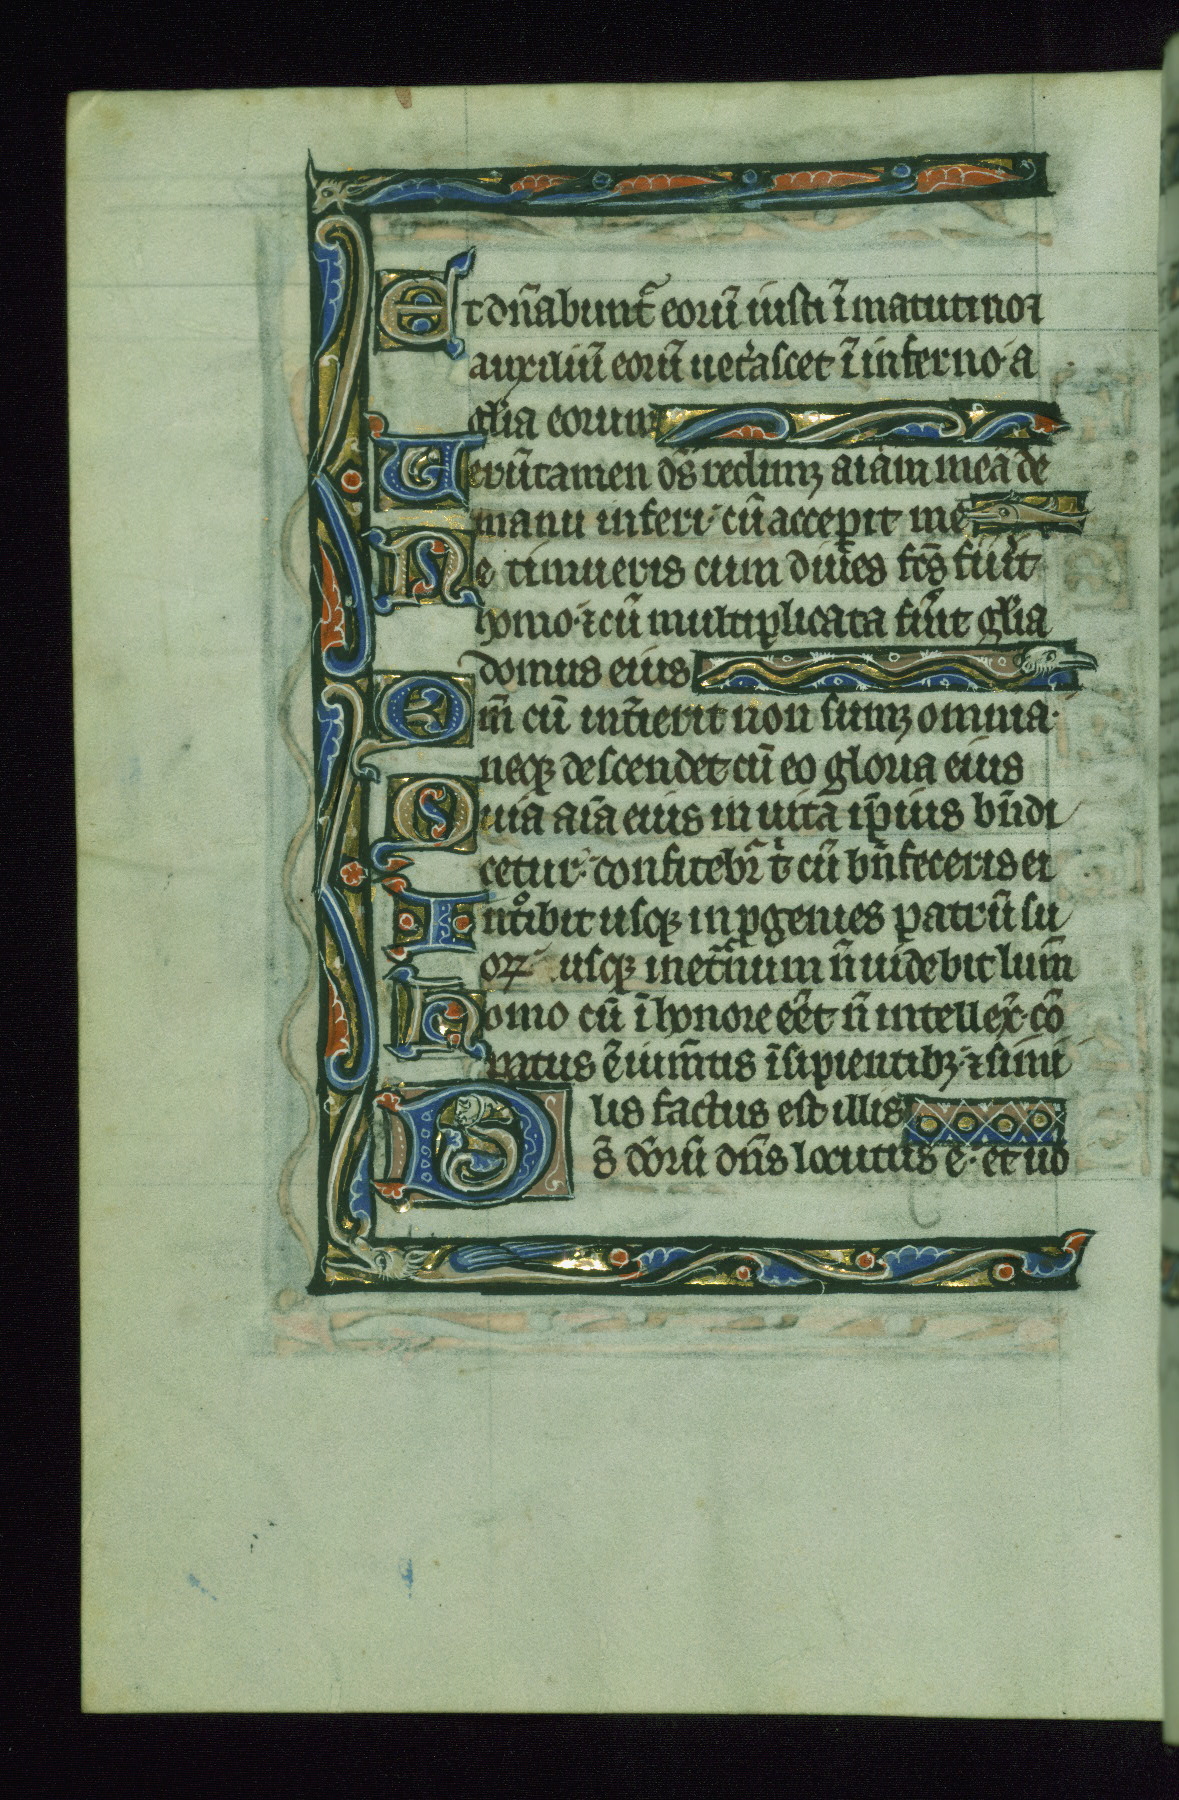 Et dn̄abunt᷑ eorū iusti ī matutino ⁊
auxiliū eorū uet᷑ascet ī inferno· a
gl̄ia eorum
Uerūtamen ds̄ redimꝫ aīam meā de
manu inferi· cū acceꝑit me
Ne timueris cum diues fc̄s fu᷑it
homo· ⁊ cū multiplicata fu᷑it gl̄ia
domus eius
Qm̄ cū int᷑ierit non sumꝫ omnia·
neqꝫ descendet cū eo gloria eius
Quia aīa eius in uita ip̄ius bn̄di
cetur· confitebr̄ t̄ cū bn̄feceris ei
Introibit usqꝫ in ꝓgenies patrū su
oꝝ· usqꝫ in et᷑num n̄ uidebit lum̄
Homo cū ī honore eēt n̄ intellex̄· cō
patus ē iumt̄is īsipientibꝫ· ⁊ simi
lis factus est illis
Ds̄ dōrū dn̄s locutus ē· et uo